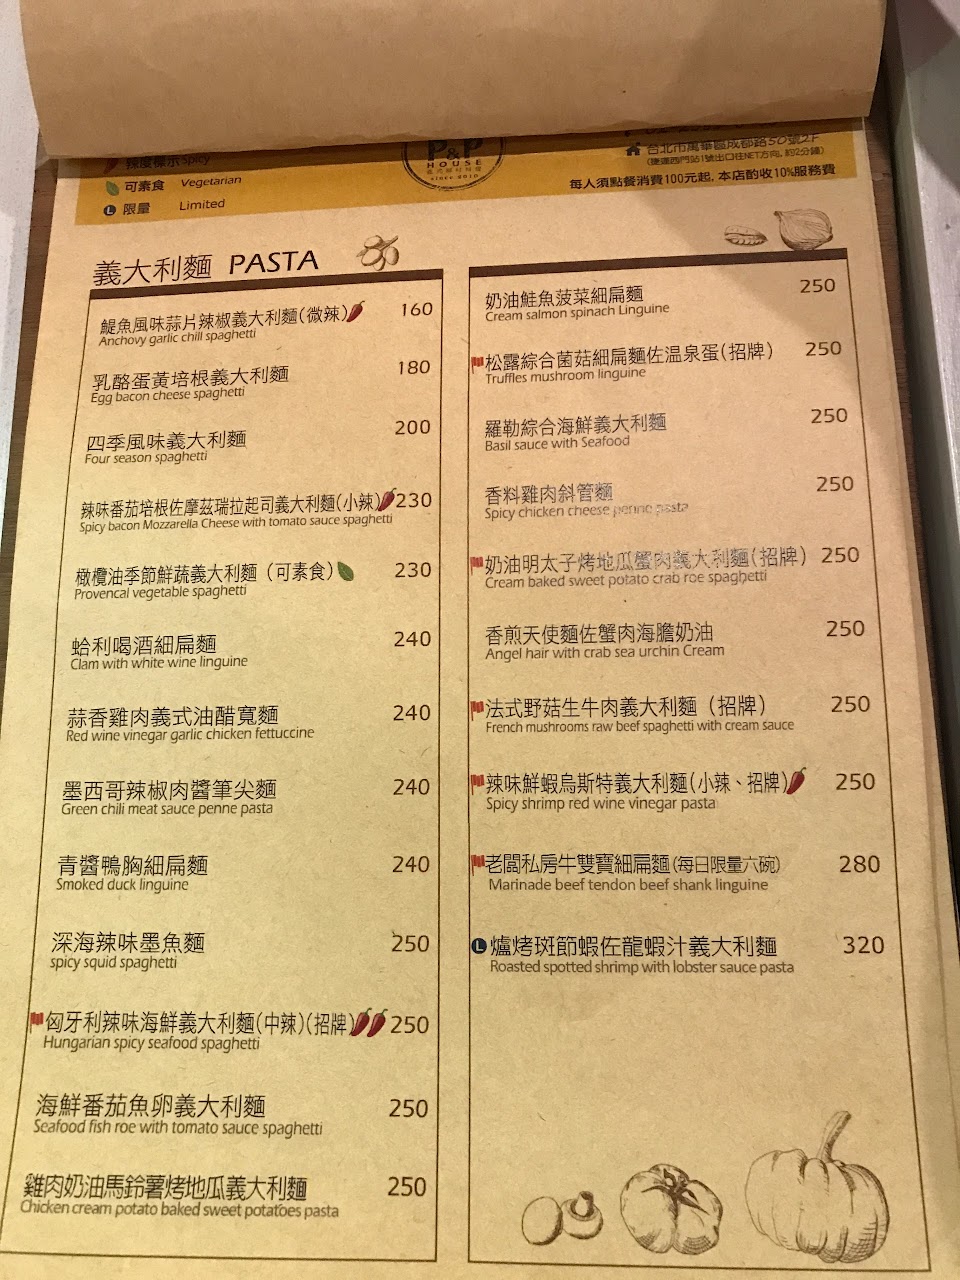 辣度標示Spicy
可素食 Vegetarian
L 限量 Limited
P&P
HOUSE
since 2010
台北市萬華區成都路50號2F
(捷運西門站1號出口往NET方向, 約2分鐘)
每人須點餐消費100元起, 本店酌收10%服務費
義大利麵 PASTA
鯷魚風味蒜片辣椒義大利麵(微辣) 160
Anchovy garlic chill spaghetti
乳酪蛋黃培根義大利麵 180
Egg bacon cheese spaghetti
四季風味義大利麵 200
Four season spaghetti
辣味番茄培根佐摩茲瑞拉起司義大利麵(小辣) 230
Spicy bacon Mozzarella Cheese with tomato sauce spaghetti
橄欖油季節鮮蔬義大利麵（可素食） 230
Provencal vegetable spaghetti
蛤利喝酒細扁麵 240
Clam with white wine linguine
蒜香雞肉義式油醋寬麵 240
Red wine vinegar garlic chicken fettuccine
墨西哥辣椒肉醬筆尖麵 240
Green chili meat sauce penne pasta
青醬鴨胸細扁麵 240
Smoked duck linguine
深海辣味墨魚麵 250
spicy squid spaghetti
匈牙利辣味海鮮義大利麵(中辣)(招牌) 250
Hungarian spicy seafood spaghetti
海鮮番茄魚卵義大利麵 250
Seafood fish roe with tomato sauce spaghetti
雞肉奶油馬鈴薯烤地瓜義大利麵 250
Chicken cream potato baked sweet potatoes pasta
奶油鮭魚菠菜細扁麵 250
Cream salmon spinach Linguine
松露綜合菌菇細扁麵佐温泉蛋(招牌) 250
Truffles mushroom linguine
羅勒綜合海鮮義大利麵 250
Basil sauce with Seafood
香料雞肉斜管麵 250
Spicy chicken cheese penne pasta
奶油明太子烤地瓜蟹肉義大利麵(招牌) 250
Cream baked sweet potato crab roe spaghetti
香煎天使麵佐蟹肉海膽奶油 250
Angel hair with crab sea urchin Cream
法式野菇生牛肉義大利麵（招牌） 250
French mushrooms raw beef spaghetti with cream sauce
辣味鮮蝦烏斯特義大利麵(小辣、招牌) 250
Spicy shrimp red wine vinegar pasta
老闆私房牛雙寶細扁麵(每日限量六碗) 280
Marinade beef tendon beef shank linguine
L 爐烤斑節蝦佐龍蝦汁義大利麵 320
Roasted spotted shrimp with lobster sauce pasta